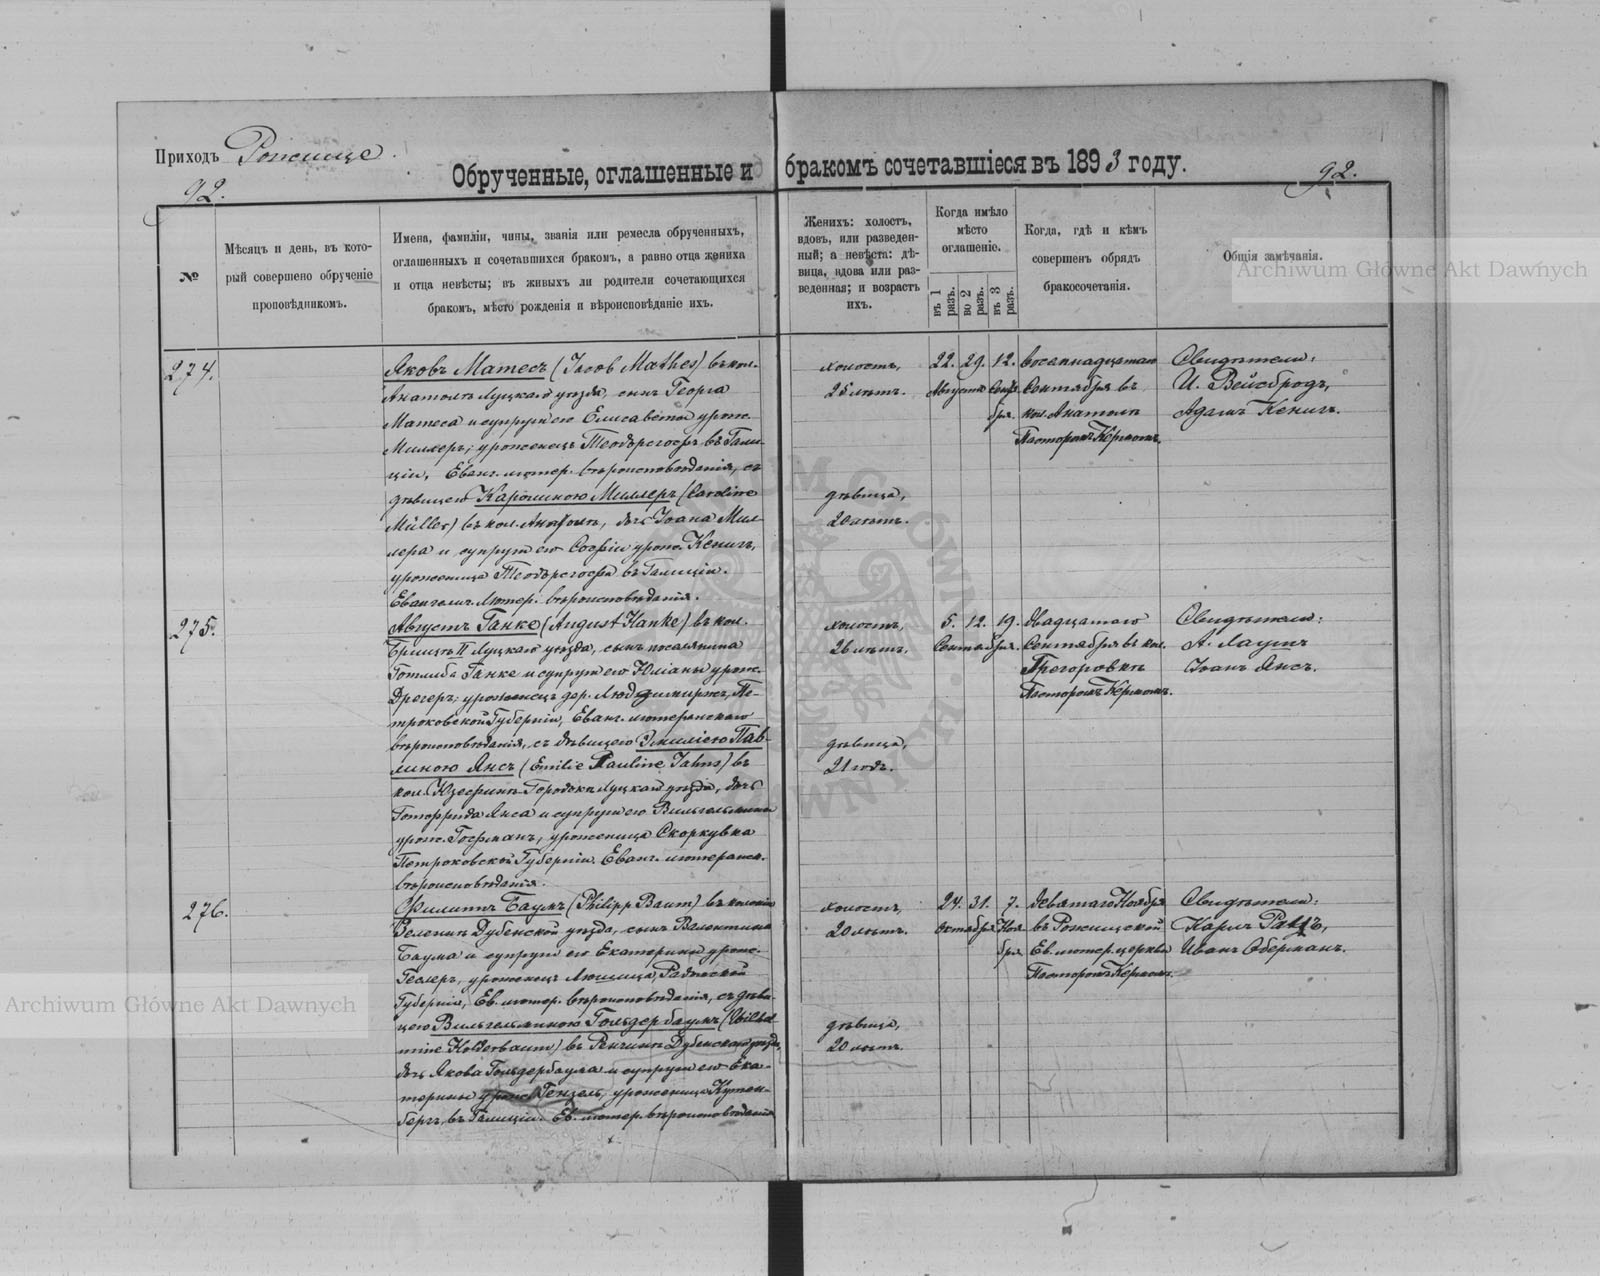 Приходъ Рожище.
92.
Обрученные, оглашенные и бракомъ сочетавшіеся въ 1893 году.
92.
№
Мѣсяцъ и день, въ кото-
рый совершено обрученіе
проповѣдникомъ.
Имена, фамиліи, чины, званія или ремесла обрученныхъ,
оглашенныхъ и сочетавшихся бракомъ, а равно отца жениха
и отца невѣсты; въ живыхъ ли родители сочетающихся
бракомъ, мѣсто рожденія и вѣроисповѣданіе ихъ.
Женихъ: холостъ,
вдовъ, или разведен-
ный; а невѣста: дѣ-
вица, вдова или раз-
веденная; и возрастъ
ихъ.
Когда имѣло
мѣсто
оглашеніе.
въ 1 разъ.
во 2 разъ.
въ 3 разъ.
Когда, гдѣ и кѣмъ
совершенъ обрядъ
бракосочетанія.
Общія замѣчанія.
Archiwum Główne Akt Dawnych
274.
Яковъ Матесъ (Jacob Mathes) въ кол.
Анатоль Луцкаго уѣзда, сынъ Георга
Матеса и супруги его Елисаветы урож.
Миллеръ; уроженецъ Теодорсгофъ въ Гали-
ціи, Еванг. лютер. вѣроисповѣданія, съ
дѣвицею Каролиною Миллеръ (Caroline
Müller) въ кол. Анатоль, дочь Іоана Мил-
лера и супруги его Софіи урож. Кенигъ,
уроженица Теодорсгофа въ Галиціи.
Евангелич. Лютер. вѣроисповѣданія.
холостъ,
25 лѣтъ.
дѣвица,
20 лѣтъ.
22. 29. 12.
Августа Сентя-
бря.
восемнадцатаго
Сентября въ
кол. Анатоль
Пасторомъ Керномъ.
Свидѣтели:
И. Вейсбродъ,
Адамъ Кенигъ.
275.
Августъ Ганке (August Hanke) въ кол.
II Луцкаго уѣзда, сынъ поселянина
Готлиба Ганке и супруги его Юліаны урож.
Дрегеръ; уроженецъ дер. Людзимиржъ, Пе-
троковской Губерніи, Еванг. лютеранскаго
вѣроисповѣданія, съ дѣвицею Эмиліею Пав-
линою Янсъ (Emilie Pauline Jahns) въ
кол. Юзефинъ-Городокъ Луцкаго уѣзда, дочь
Готфрида Янса и супруги его Вильгельмины
урож. Гофманъ, уроженица Скоркувка
Петроковской Губерніи. Еванг. лютеранск.
вѣроисповѣданія.
холостъ,
26 лѣтъ.
дѣвица,
21 годъ.
5. 12. 19.
Сентября.
двадцатаго
Сентября въ кол.
Грегоровкѣ
Пасторомъ Керномъ.
Свидѣтели:
А. Лаутъ
Іоанъ Янсъ.
276.
Филиппъ Баумъ (Philipp Baum) въ колоніи
Зеленій Дубенской уѣзда, сынъ Валентина
Баума и супруги его Екатерины урож.
Геслеръ, уроженецъ Радомской
Губерніи, Ев. лютер. вѣроисповѣданія, съ дѣви-
цею Вильгельминою Гольдербаумъ (Wilhel-
mine Holderbaum) въ Дубенскаго уѣзда,
дочь Якова Гольдербаума и супруги его Ека-
терины урож. Гензель, уроженица Кутен-
бергъ, въ Галиціи. Ев. лютер. вѣроисповѣданія
холостъ,
20 лѣтъ.
дѣвица,
20 лѣтъ.
24. 31. 7.
Октября Ноя-
бря
девятаго Ноября
въ Рожищской
Ев. лютер. церкви
Пасторомъ Керномъ.
Свидѣтели:
Карлъ
Иванъ Оберманъ.
Archiwum Główne Akt Dawnych